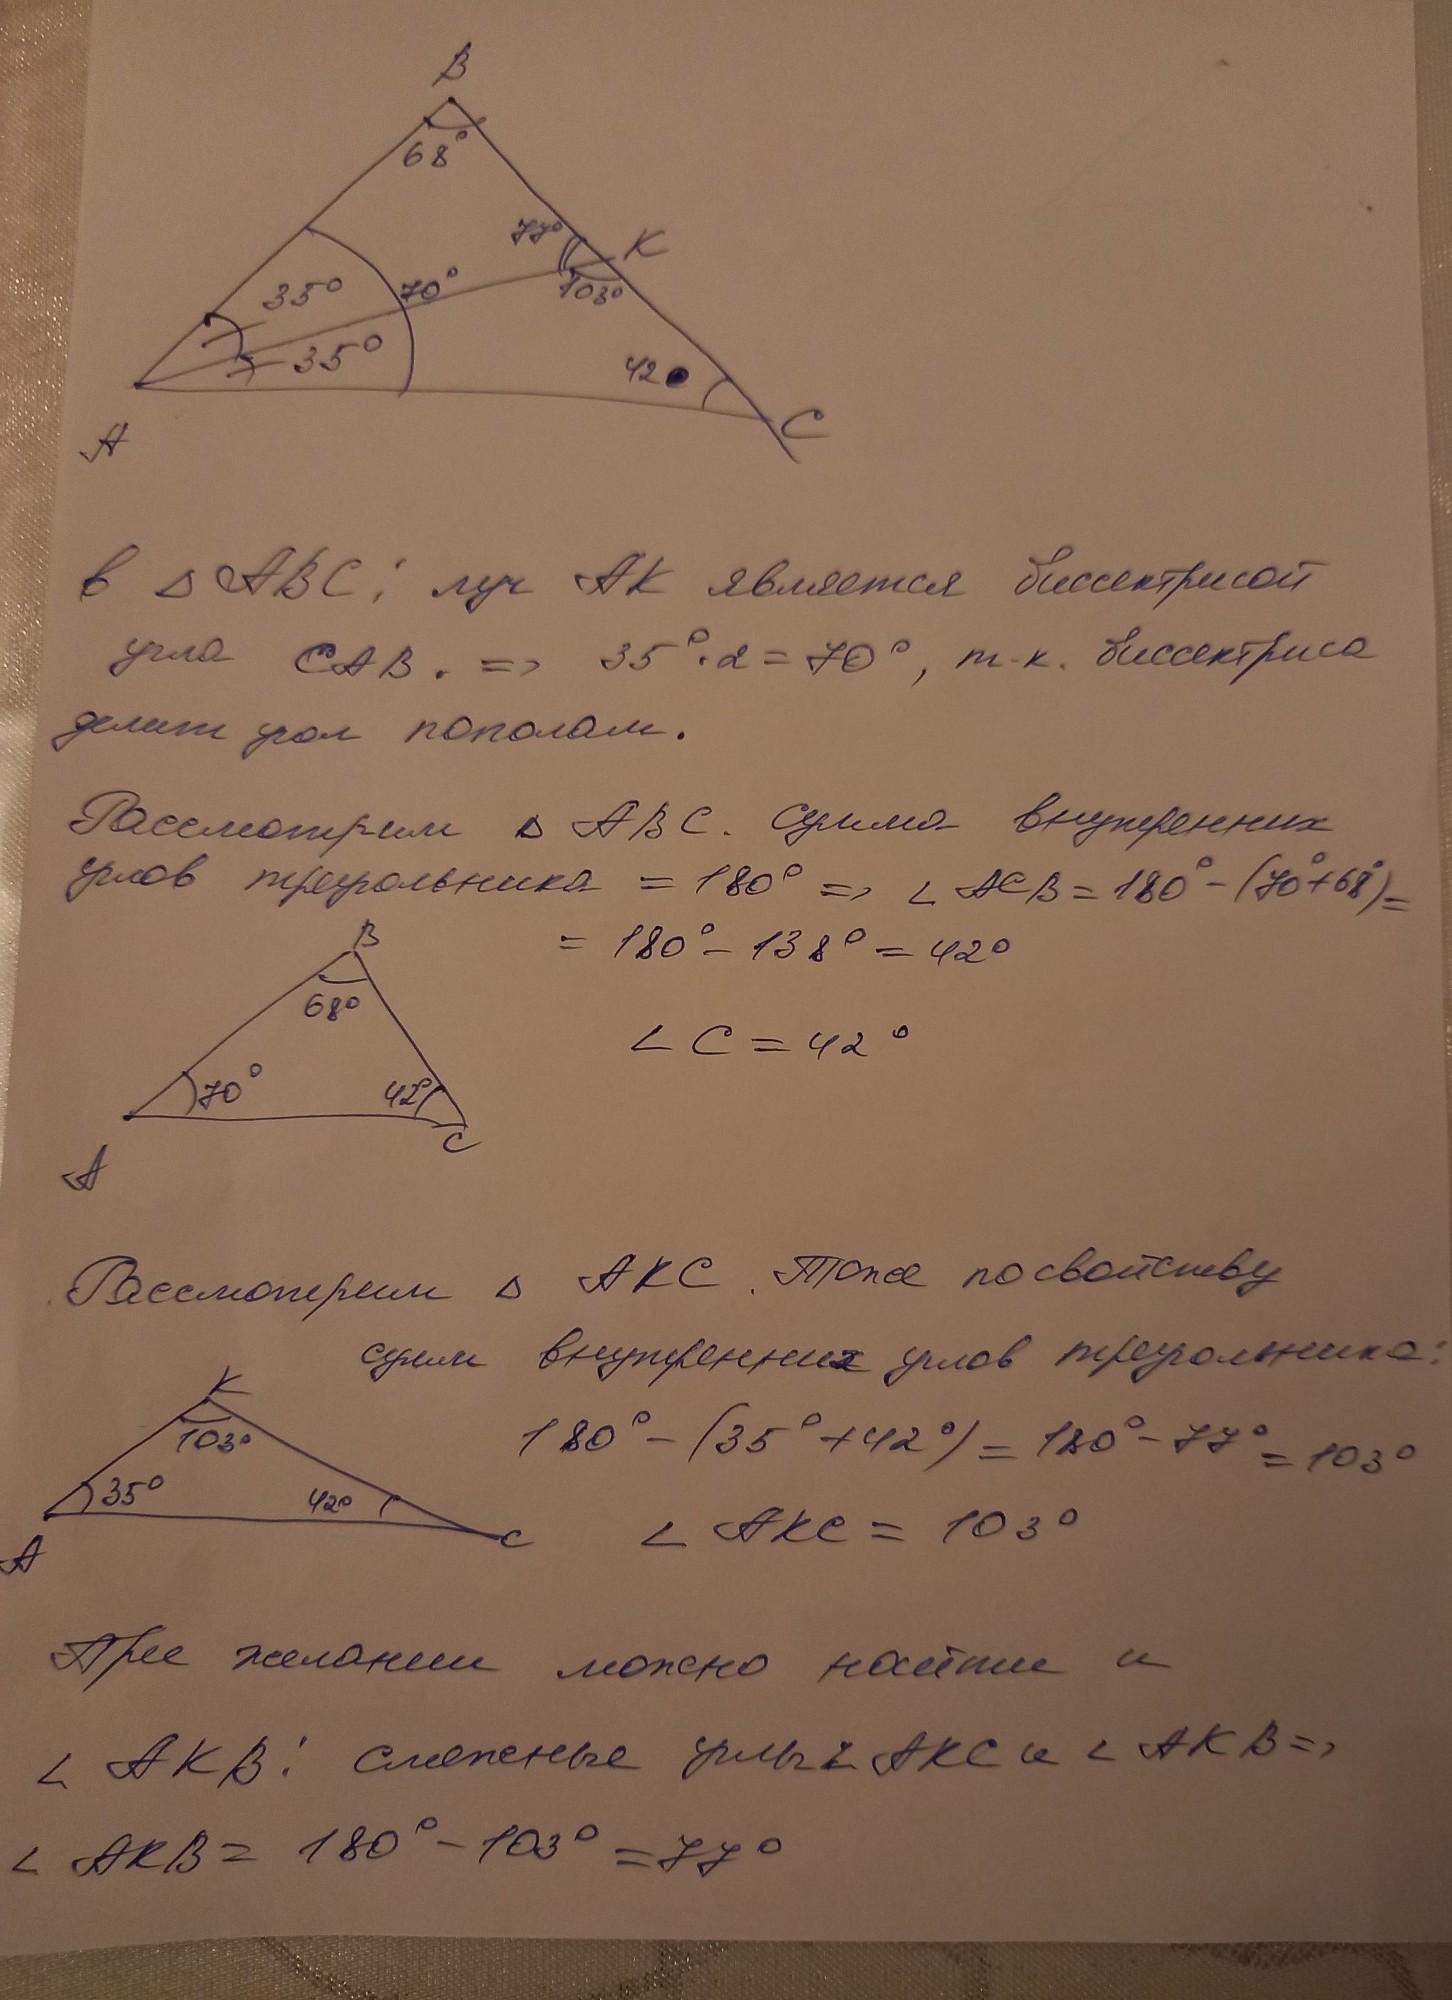 B
68°
77°
K
35°
70°
103°
35°
42
A
C
в △ ABC: луч AK является биссектрисой
угла CAB. => 35°·2=70°, т.к. биссектриса
делит угол пополам.
Рассмотрим △ ABC. Сумма внутренних
углов треугольника = 180° => ∠ ACB = 180° - (70°+68°) =
= 180° - 138° = 42°
B
68°
∠ C = 42°
70°
42°
C
A
Рассмотрим △ AKC. Тоже по свойству
сумм внутренних углов треугольника:
K
103°
180° - (35° + 42°) = 180° - 77° = 103°
35°
42°
∠ AKC = 103°
A
C
При желании можно найти и
∠ AKB: смежные углы ∠ AKC и ∠ AKB =>
∠ AKB = 180° - 103° = 77°